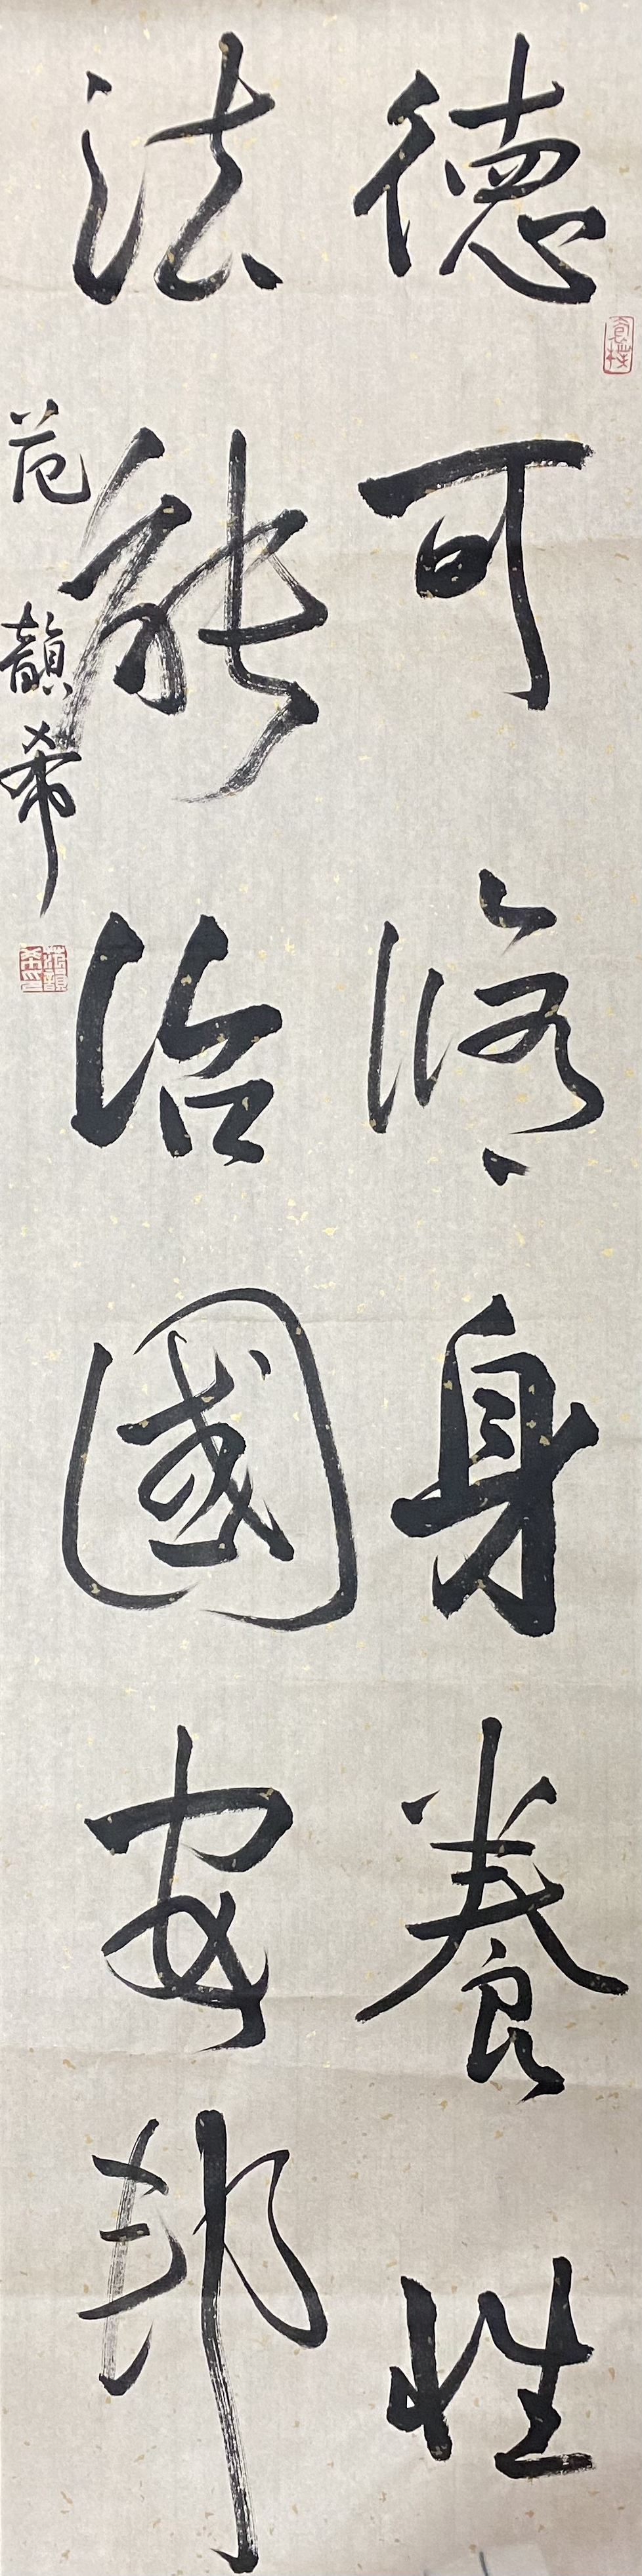 德可修身養性
法能治國安邦
范韻希